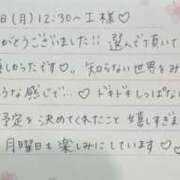 日(月)12:30〜I様♡
がとうございました!!選んで頂いて
しかったです♡。知らない世界をみ
ような感じで…ドキドキしっぱな
予定を決めてくれたこと嬉しすぎま
月曜日も楽しみにしています♡